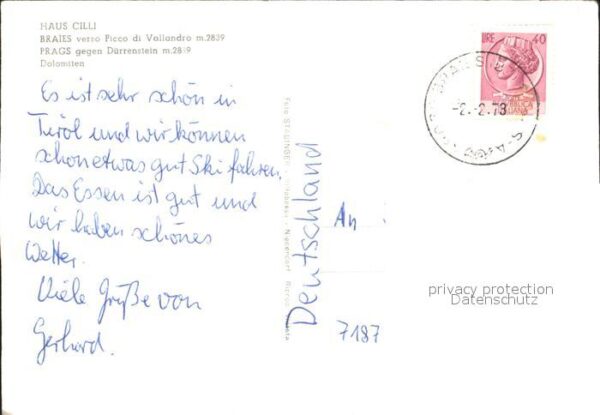 HAUS CILLI
BRAIES verso Picco di Vallandro m.2839
PRAGS gegen Dürrenstein m.2839
Dolomiten
Es ist sehr schön in
Tirol und wir können
schon etwas gut Ski fahren.
Das Essen ist gut und
wir haben schönes
Wetter.
Viele Grüße von
Gerhard.
Foto
Deutschland
LIRE 40
-2.-2.78
An
7187
privacy protection
Datenschutz